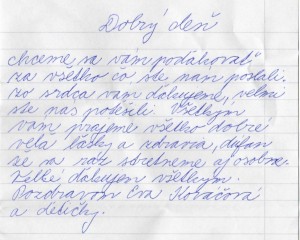 Dobrý deň
chceme sa vám poďakovať
za všetko čo ste nám poslali.
zo srdca vám ďakujeme, veľmi
ste nás potešili. Všetkým
vám prajeme všetko dobré
veľa lásky a zdravia, dúfam
že sa raz stretneme aj osobne.
Veľké ďakujem všetkým.
Pozdravom Eva Kováčová
a detičky.